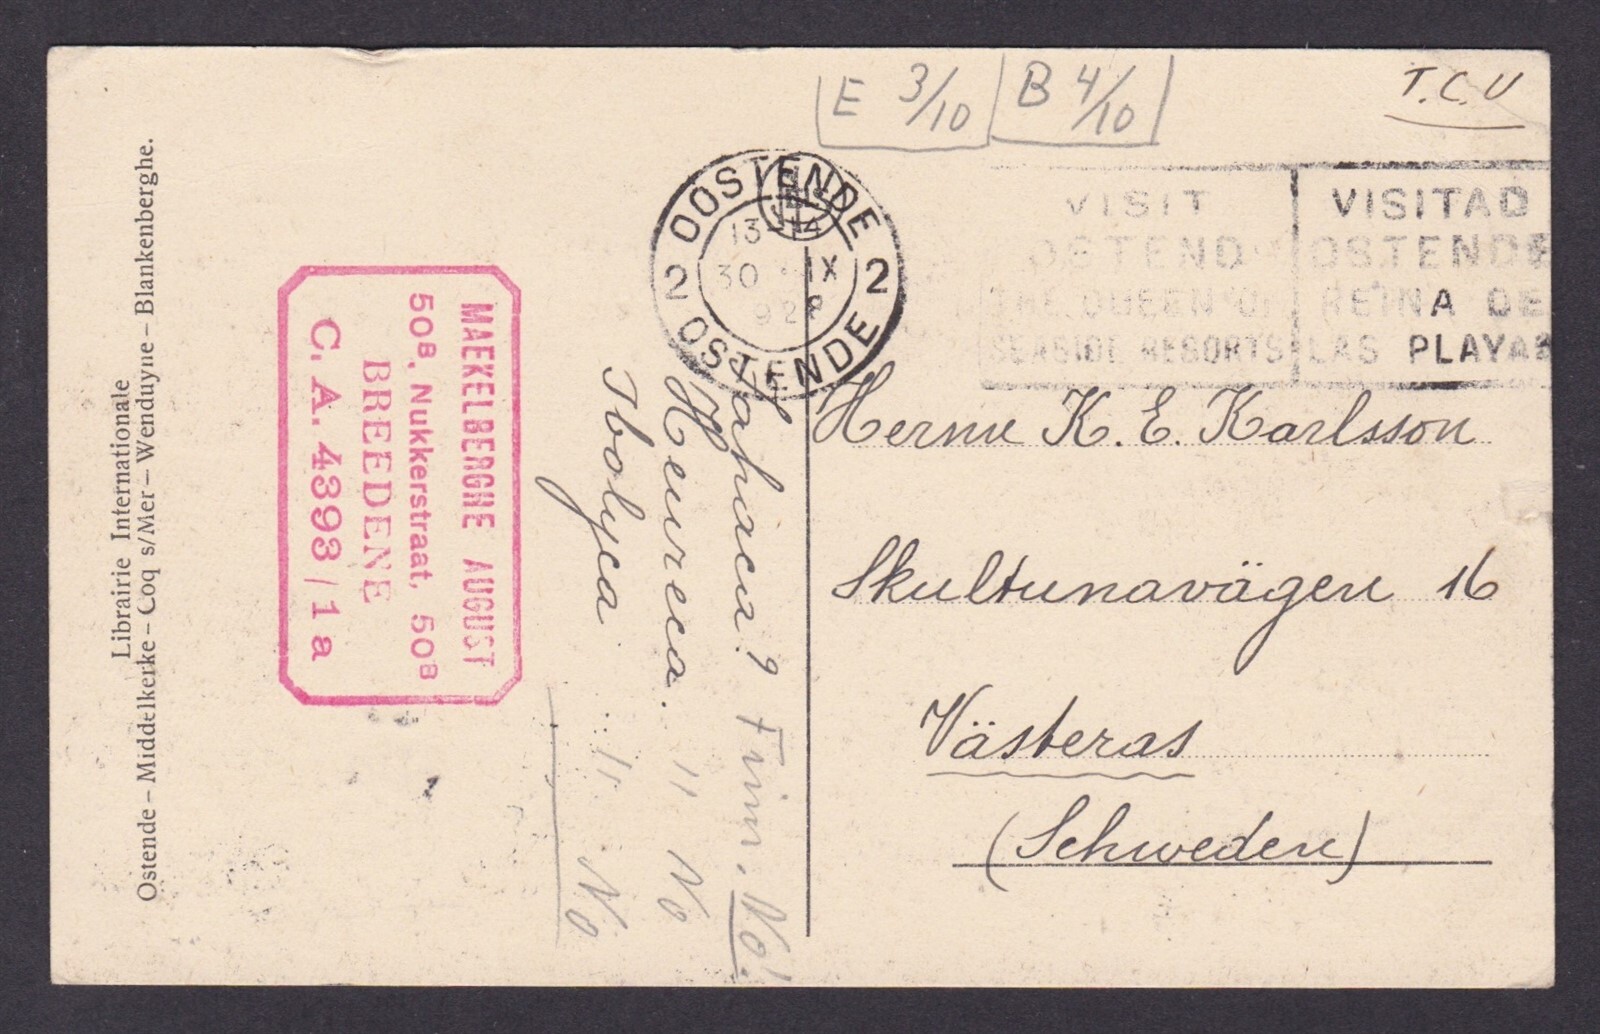 E 3/10
B 4/10
T.C.V
OOSTENDE
13-14
30 IX
2 2
OSTENDE
VISIT
OSTEND
THE QUEEN OF
SEASIDE RESORTS
VISITAD
OSTENDE
REINA DE
LAS PLAYAS
Herrn K. E. Karlsson
Skultunavägen 16
Västeras
(Schweden)
Heureca. " No
Ibolyca " No
MAEKELBERGHE AUGUST
50B, Nukkerstraat, 50B
BREEDENE
C. A. 4393/1a
Librairie Internationale
Ostende – Middelkerke – Coq s/Mer – Wenduyne – Blankenberghe.